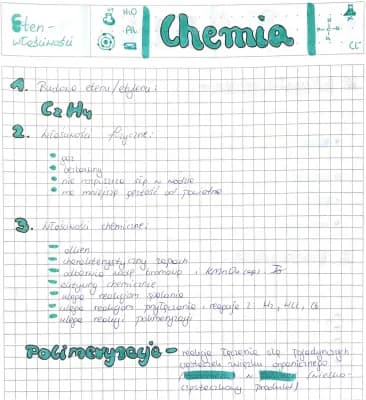 Eten - H₂O
właściwości AL
Chemia
Cl⁻
1. Budowa etenu/etylenu:
C2H4
2. Właściwości fizyczne:
• gaz
• bezbarwny
• nie rozpuszcza się w wodzie
• ma mniejszą gęstość od powietrza
3. Właściwości chemiczne:
• charakterystyczny zapach
• odbarwia wodę bromową i KMnO₄(aq)
• aktywny chemicznie
• ulega reakcjom spalania
• ulega reakcjom przyłączania, reaguje z: H₂, HCl,
• ulega reakcji polimeryzacji
Polimeryzacja - reakcja łączenia się pojedynczych
cząsteczek związku organicznego
w (wielko-
cząsteczkowy produkt)